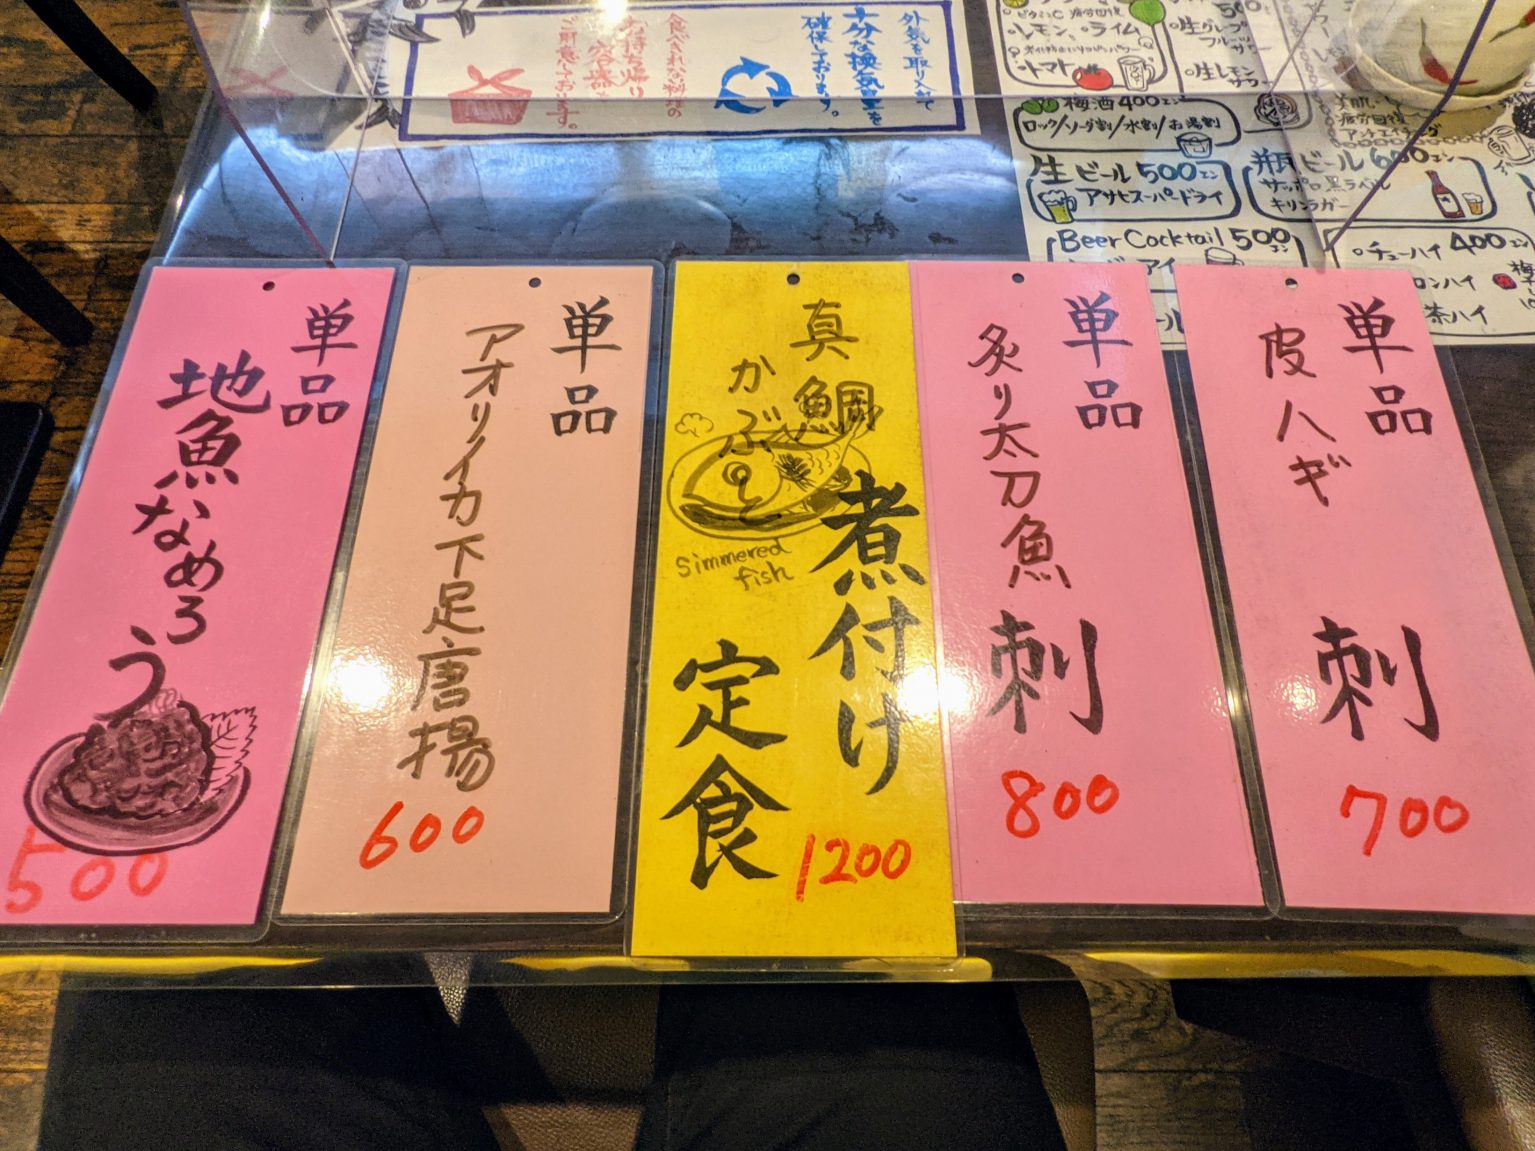 外気を取り入れて
十分な換気量を
確保しております。
食べきれない料理の
お持ち帰り
容器を
ご用意しております。
ビタミンC 疲労回復
レモン、ライム
トマト
500
生グレープ
フルーツ
サワー
生レモン
サワー
梅酒400エン
ロック/ソーダ割/水割/お湯割
疲労回復
アンチエイチング
生ビール500エン
アサヒスーパードライ
瓶ビール600エン
サッポロ黒ラベル
キリンラガー
Beer Cocktail 500エン
チューハイ 400エン
単品
皮ハギ
刺
700
単品
炙り太刀魚
刺
800
真鯛
かぶと
煮付け
定食
simmered
fish
1200
単品
アオリイカ下足唐揚
600
単品
地魚なめろう
500